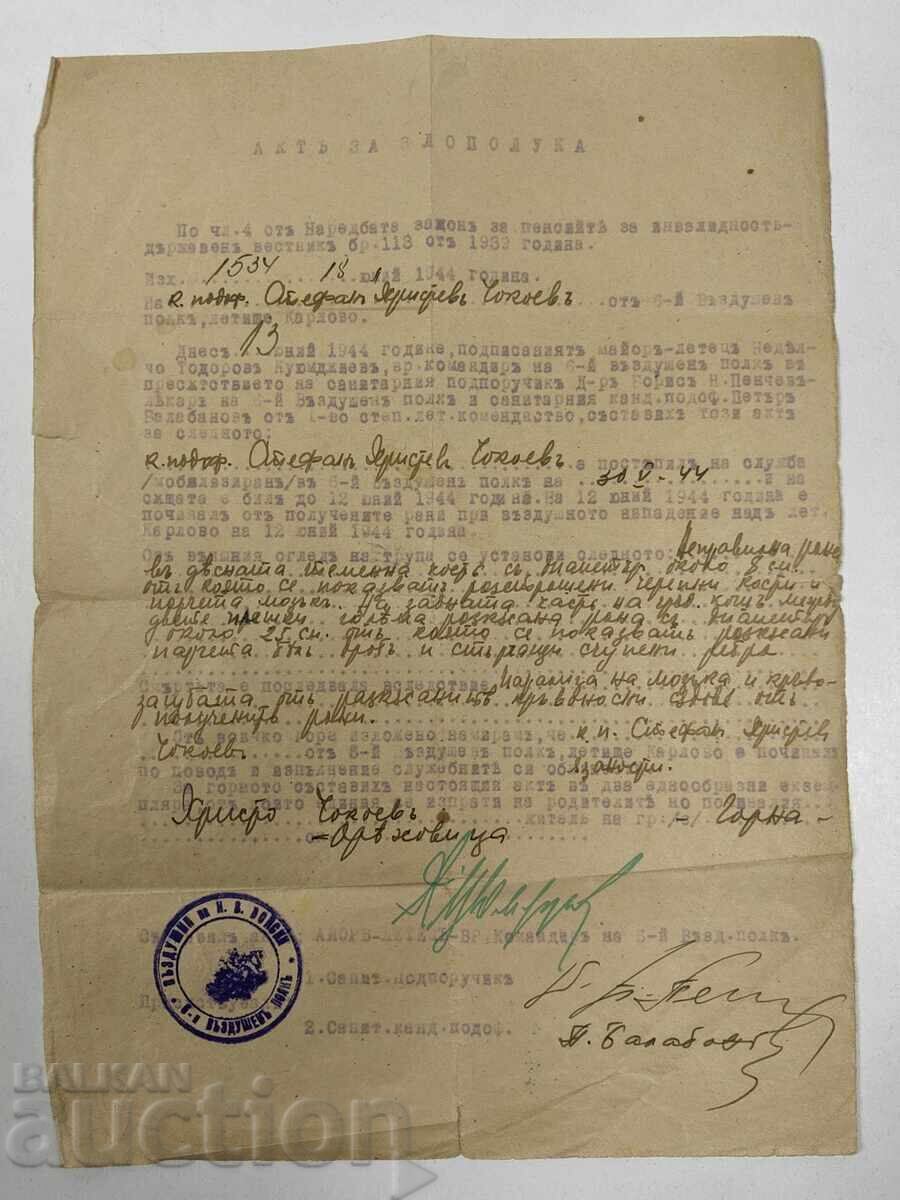 АКТЪ ЗА ЗЛОПОЛУКА
По чл.4 отъ Наредбата законъ за пенсиитѣ за инвалидность-
държавенъ вестникъ бр.113 отъ 1939 година.
Изх. 1534 18 юний 1944 година.
На к. подоф. Стефанъ Христевъ Чокоевъ отъ 6-й Въздушенъ
полкъ, летище Карлово.
Днесъ 13 юний 1944 година, подписаниятъ майоръ-летецъ Недѣл-
чо Тодоровъ Куюмджиевъ, вр.командиръ на 6-й въздушенъ полкъ въ
присѫтствието на санитарния подпоручик Д-ръ Борисъ Н.Пенчевъ-
лѣкаръ на 6-й Въздушенъ полкъ и санитарния канд.подоф.Петъръ
Балабановъ отъ 1-во степ.лет.комендаство, съставихъ този актъ
за следното:
к. подоф. Стефанъ Христевъ Чокоевъ е постѫпилъ на служба
/мобилизиранъ/въ 6-й Въздушенъ полкъ на 30.V-44 и на
сѫщата е билъ до 12 юний 1944 година. На 12 юний 1944 година е
починалъ отъ получените рани при въздушното нападение надъ лет.
Карлово на 12 юний 1944 година.
Отъ външния огледъ на трупа се установи следното: Неправилна рана
въ дѣсната теменна кость съ диаметъръ около 8 см.
отъ която се показватъ разтрошени черепни кости и
парчета мозъкъ. На задната часть на грѣд. кошъ между
двете плешки голѣма разкѫсана рана съ диаметъръ
около 25 см. отъ която се показватъ разкѫсани
парчета бѣлъ дробъ и стърчащи счупени ребра.
Смъртьта е последвала вследствие парализа на мозъка и крьво-
загубата отъ разкѫсанитѣ крьвоносни сѫдове отъ
полученитѣ рани.
Отъ всичко горе изложено намирамъ, че к.п. Стефанъ Христевъ
Чокоевъ отъ 6-й Въздушенъ полкъ, летище Карлово е починалъ
по поводъ и изпълнение служебнитѣ си обязаности.
За горното съставихъ настоящий актъ въ два еднообразни екзем-
пляра, отъ които единия се изпрати на родителитѣ на починалия
Христо Чокоевъ жителъ на гр./с/ - Горна -
- Орѣховица
Съставилъ акта: МАЙОРЪ-ЛЕТЕЦЪ-ВР.Командиръ на 6-й Възд.полкъ.
1.Санит.Подпоручикъ
2.Санит.канд.подоф.
П. Балабановъ
ВЪЗДУШНИ НА Н. В. ВОЙСКИ
6-и ВЪЗДУШЕНЪ ПОЛКЪ
BALKAN
auction